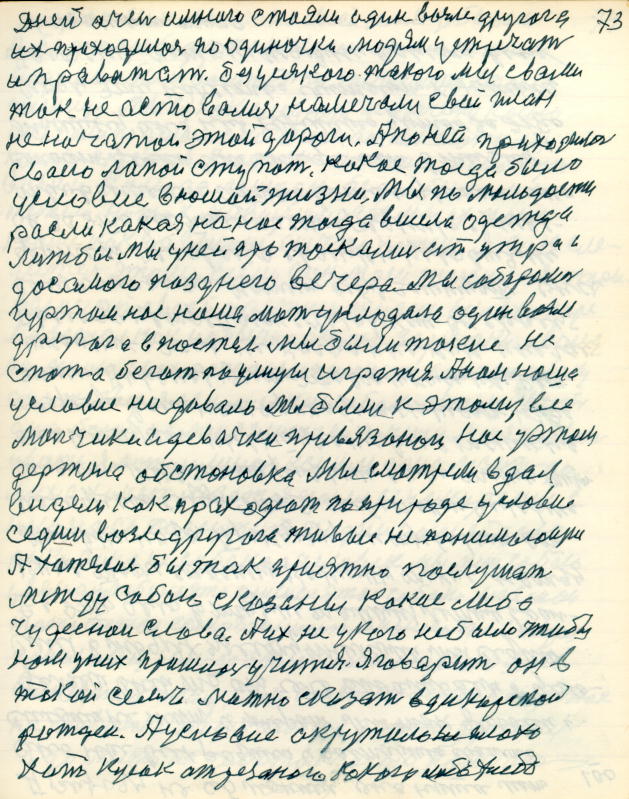 73
Дней очен много стояли один возле другога
их приходилося по одиночки людям устречат
и проважат. Без усякого такого мы свами
так не аставалися намечали свой план
не начатой этой дороги. А по ней приходилося
своею лапой ступат, какое тогда было
условие в нашай жизни. Мы по молодости
расли какая на нас тогда висела одежда
лижбы мы у ней протаскались от утра и
до самого позднего вечера. Мы собиралис
гуртом нас наша мать укладала один возле
другога в постел. Мы были такие не
спат а бегат по улицы игратия. А нам наша
условие ни давалъ мы были к этому все
малчики и девачки привязанаи нас у этом
держала обстоновка. Мы смотрели в дал
видели как праходят по природе условие
седим возле друга живые не понимающии
А хателося бы так приятно послушат
между сабою сказаны какие либо
чудеснаи слова. А их не у кого не было чтобы
нам у них пришлос учится. Я гаварит он в
такой семъе можно сказат в дикарской
рожден. А условие окружило не мало
хоть кусок отрезаного какого либо хлеба